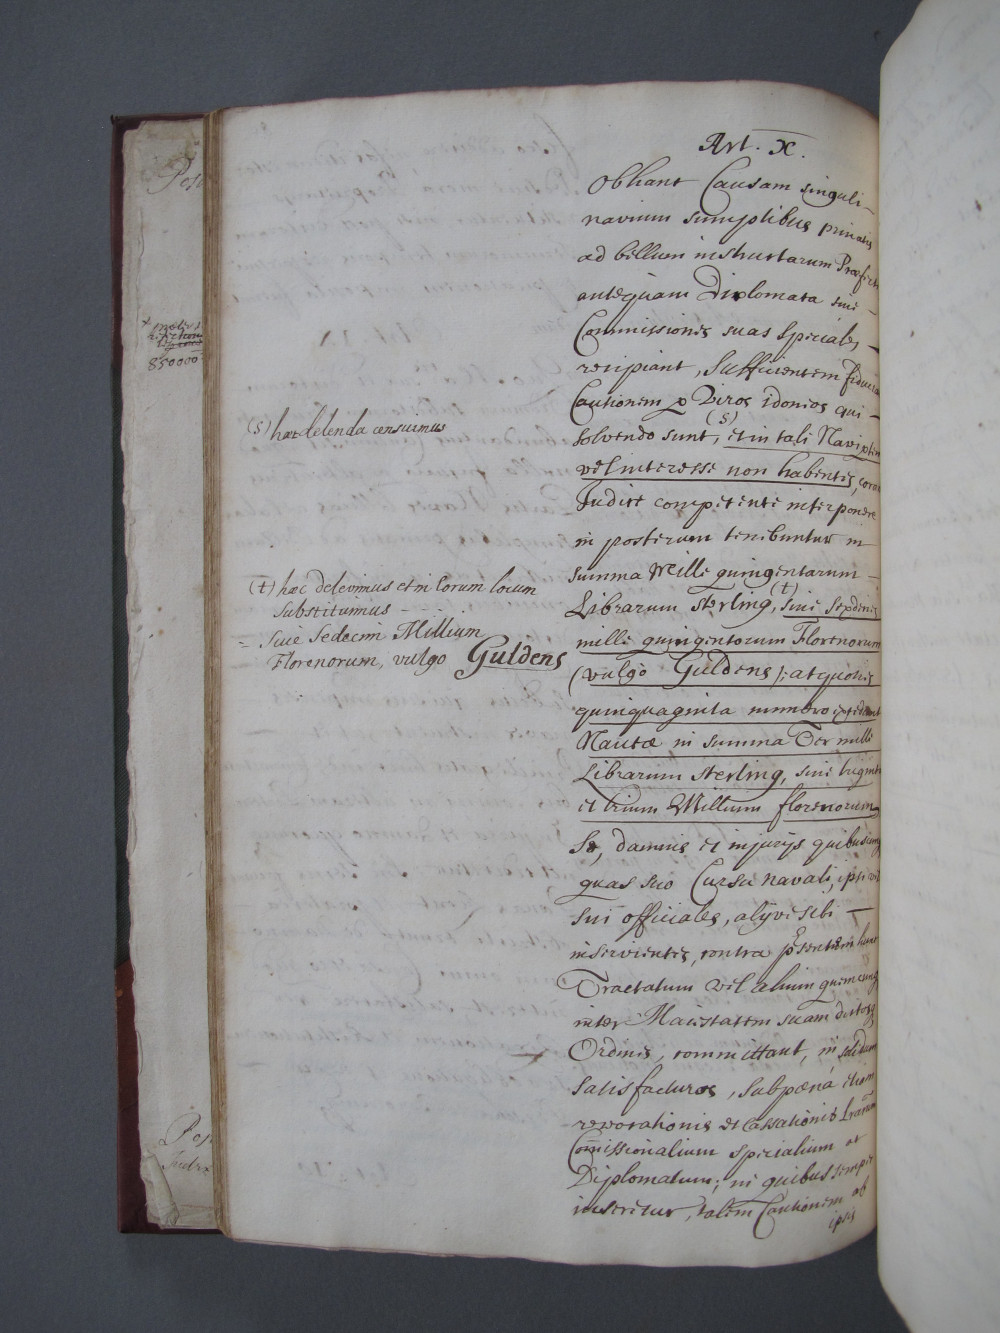 Art. X.
Obhanc Causam singuli
navium sumptibus privatis
ad bellum instructarum Præfecti
antequam Diplomata sive
Commissiones suas Speciales
recipiant, Sufficientem
Cautionem p Viros idoneos qui
solvendo sunt, (s) et in tali Navi
vel interesse non habentes, coram
Judice competente interponere
in posterum tenebuntur in
summa Mille quingentarum
Librarum Sterling, (t) sive sexdecim
mille quingentorum Florenorum
(vulgo Guldens); at quoties
quinquaginta numero excedunt
Nautæ in summa Ter mille
Librarum Sterling, sive triginta
et trium Millium florenorum
Se, damnis et injurijs quibuscunq
quas suo Cursu navali, ipsi vel
sui officiales, alijve sibi
inservientes, contra psentem hunc
Tractatum vel alium quemcunq
inter Maiestatem suam dictosq
Ordines, committant, in solidum
satisfacturos, sub pœna etiam
revocationis et Cassationis
Comissionalium specialium et
Diplomatum; in quibus semper
inseretur, talem Cautionem ab
ipsis
(s) hæc delenda censuimus
(t) hæc delevimus et in Eorum locum
Substituimus
= Sive Sedecim Millium
Florenorum, vulgo Guldens
850000